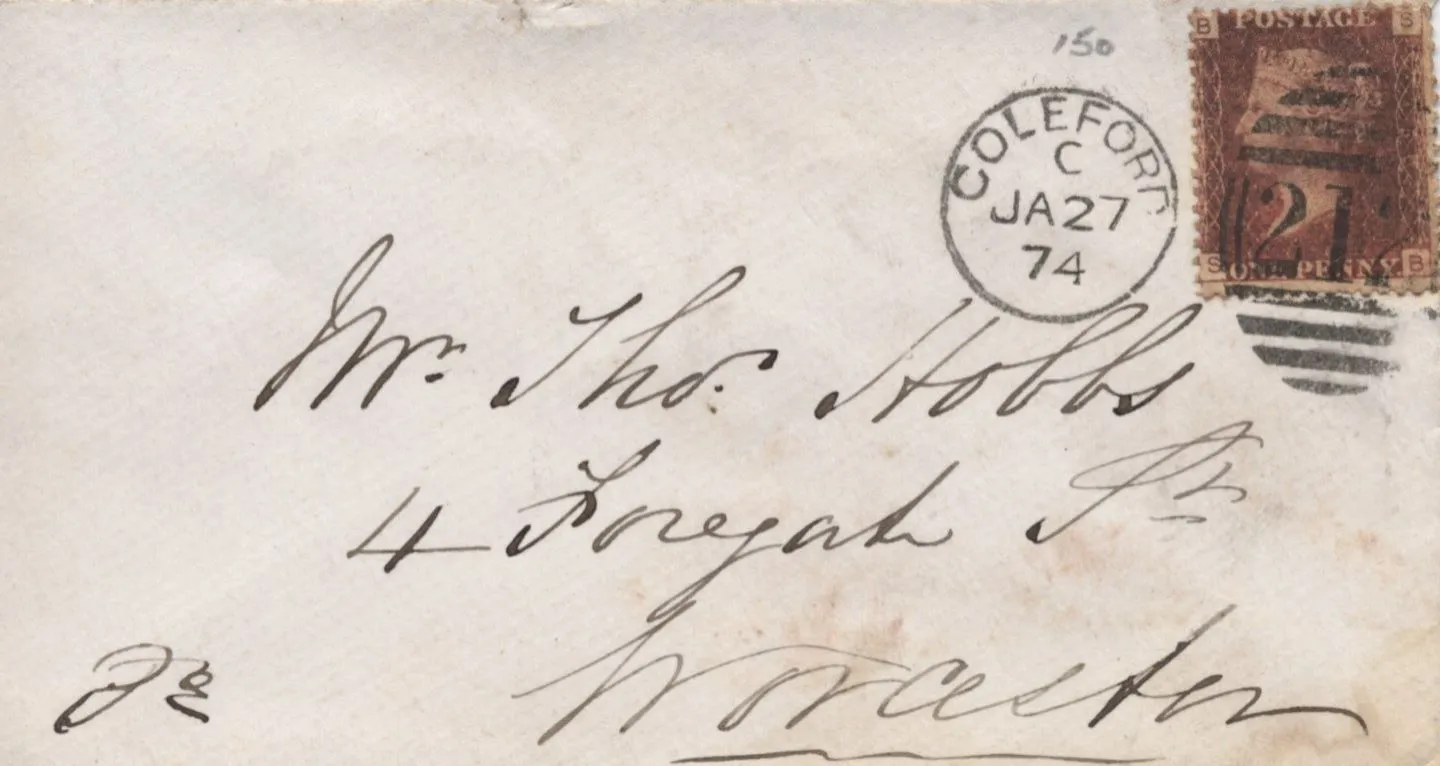 150
B POSTAGE S
COLEFORD
C
JA 27
74
212
S ONE PENNY B
Mr. Thos. Hobbs
4 Foregate St.
Worcester